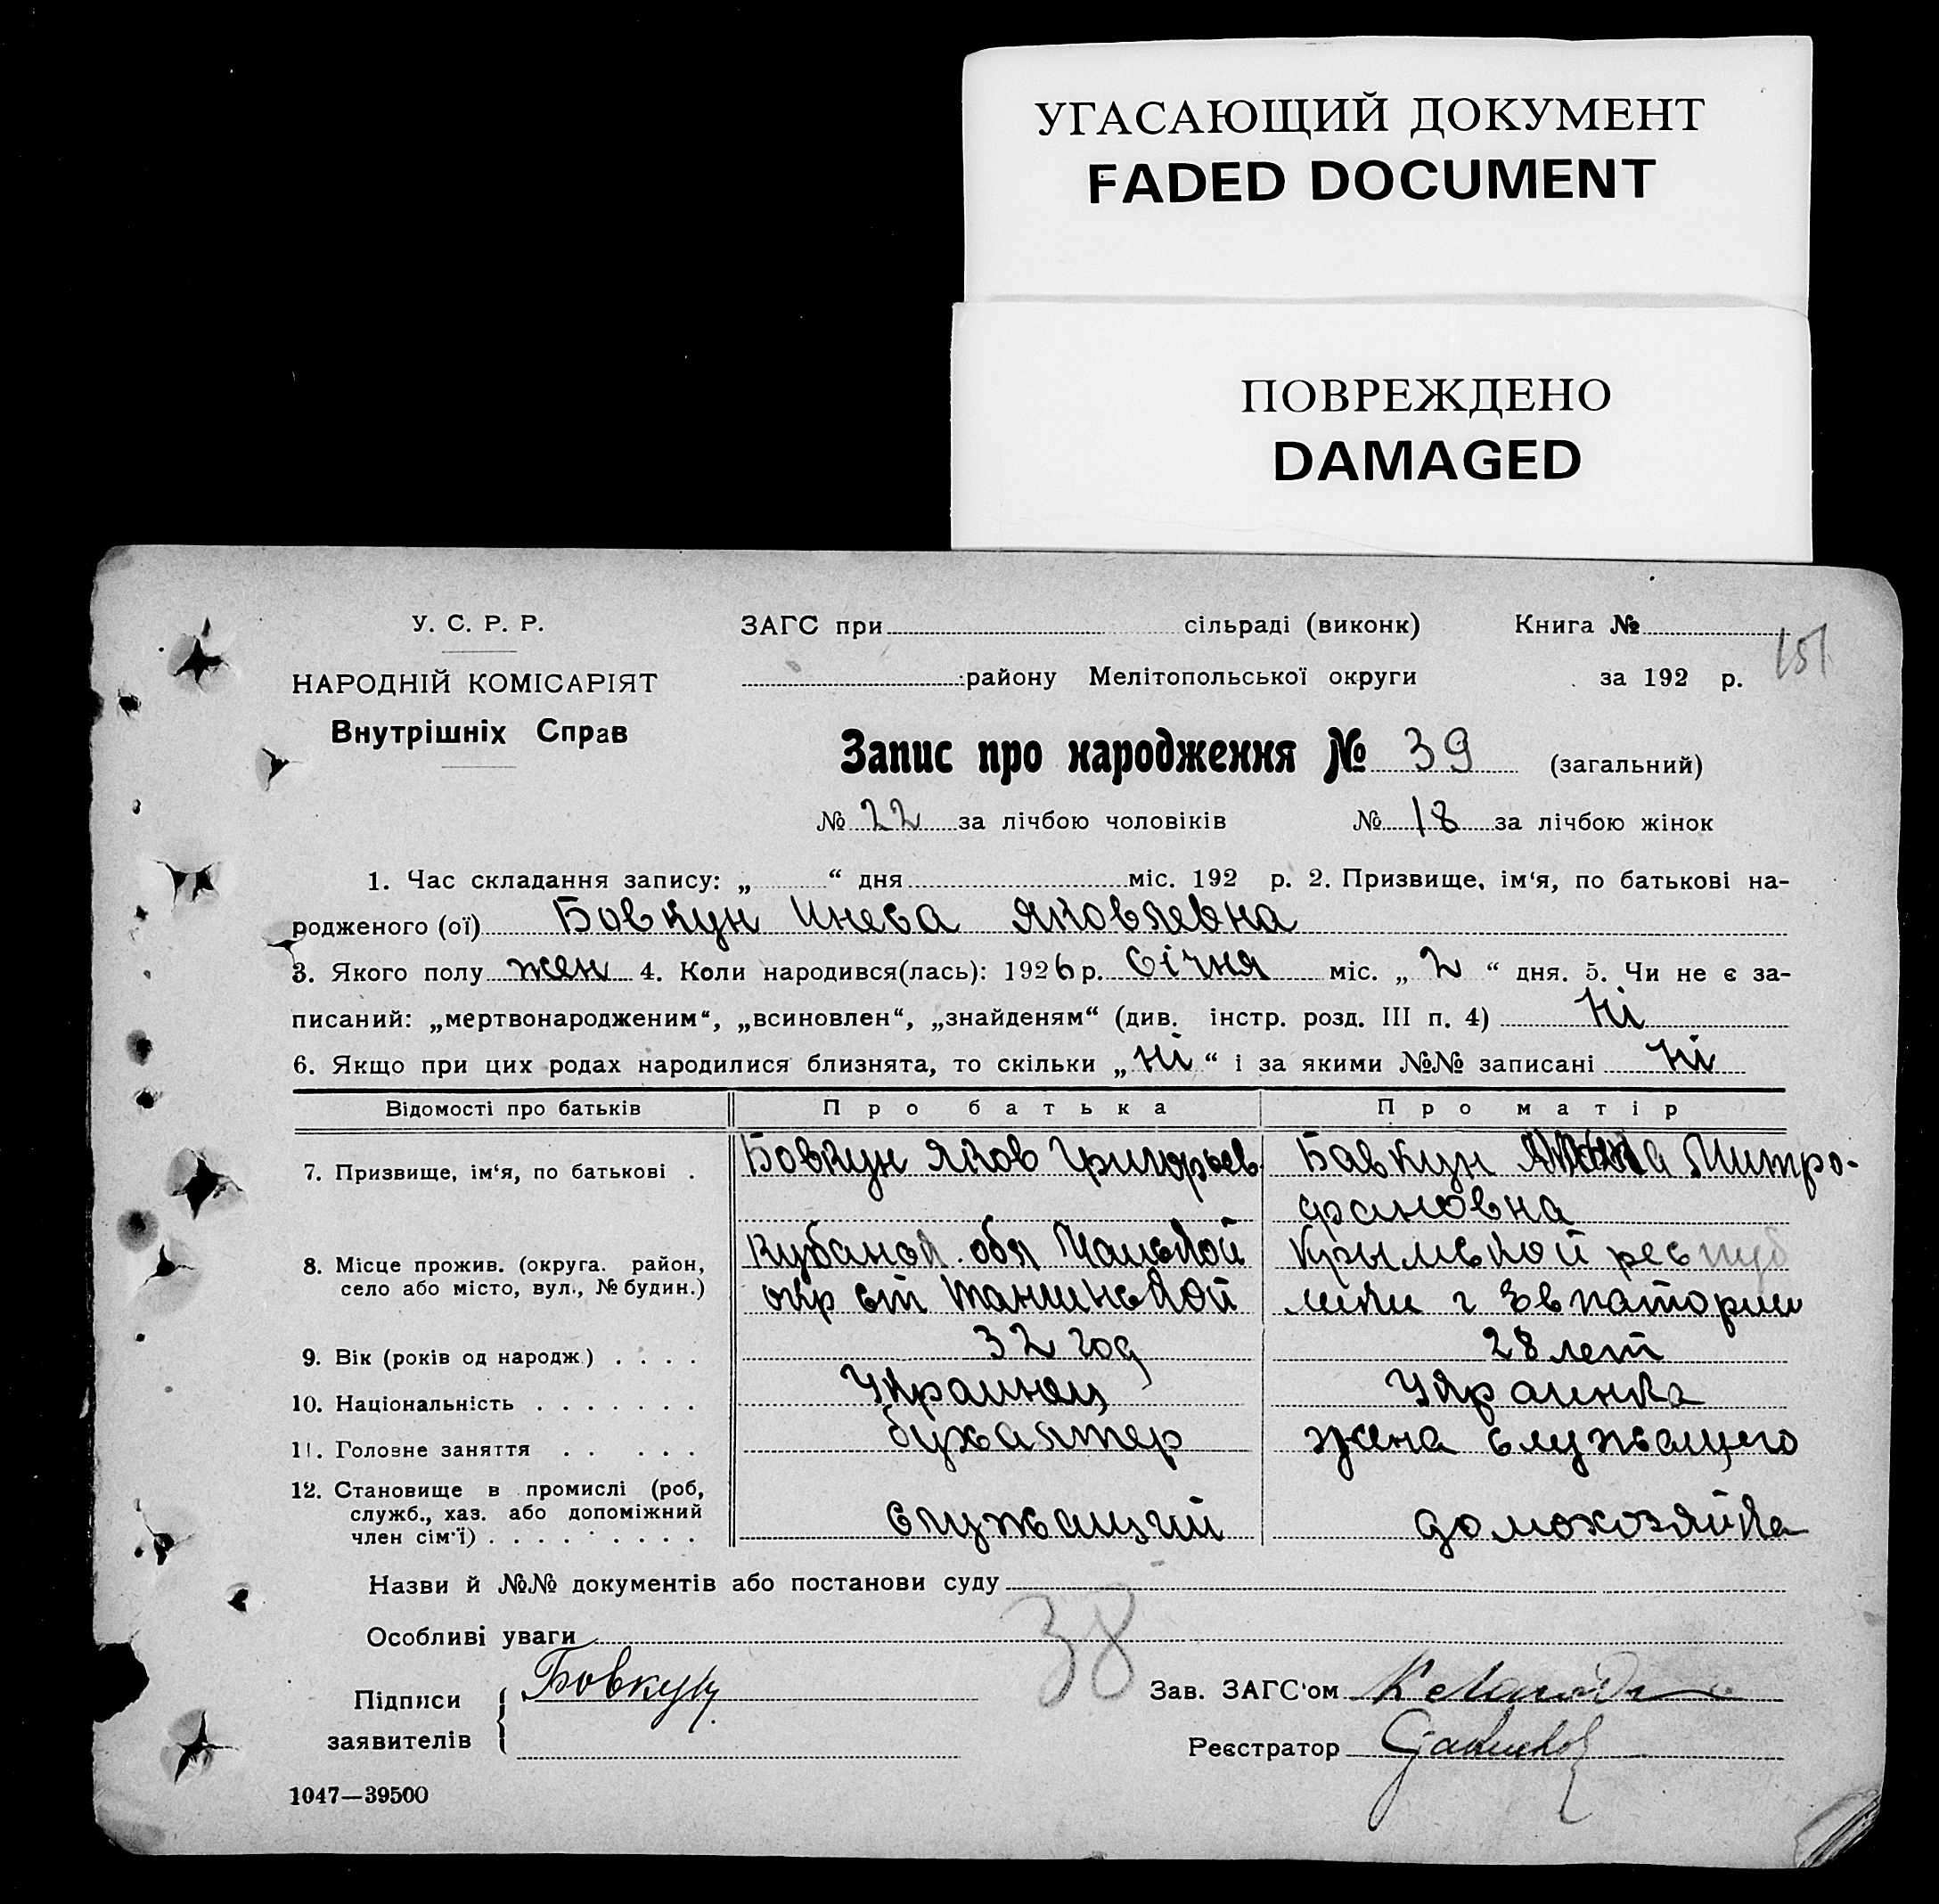 УГАСАЮЩИЙ ДОКУМЕНТ
FADED DOCUMENT
ПОВРЕЖДЕНО
DAMAGED
У. С. Р. Р.
ЗАГС при сільраді (виконк) Книга №
151
НАРОДНІЙ КОМІСАРІЯТ
району Мелітопольської округи за 192 р.
Внутрішніх Справ
Запис про народження № 39 (загальний)
№ 22 за лічбою чоловіків № 18 за лічбою жінок
1. Час складання запису: „ “ дня міс. 192 р. 2. Призвище, ім‘я, по батькові на-
родженого (ої) Бовкун Инеса Яковлевна
3. Якого полу жен 4. Коли народився(лась): 1926 р. Січня міс. „ 2 “ дня. 5. Чи не є за-
писаний: „мертвонародженим“, „всиновлен“, „знайденям“ (див. інстр. розд. III п. 4) Ні
6. Якщо при цих родах народилися близнята, то скільки „ Ні “ і за якими №№ записані Ні
Відомості про батьків Про батька Про матір
7. Призвище, ім‘я, по батькові . Бовкун Яков Григорьев Бавкун Митро-
фановна
8. Місце прожив. (округа. район, Кубанск. обл Крымской респуб
село або місто, вул., № будин.) окр ст лики г Евпатории
9. Вік (років од народж.) . . . . 32 год 28 лет
10. Національність . . . . . . . Украинец Украинка
11. Головне заняття . . . . . бухалтер жена служащего
12. Становище в промислі (роб,
служб., хаз. або допоміжний
член сім‘ї) . . . . . . . . . служащий домохозяйка
Назви й №№ документів або постанови суду
38
Особливі уваги
Підписи Бовкун Зав. ЗАГС‘ом
заявителів Реєстратор
1047—39500